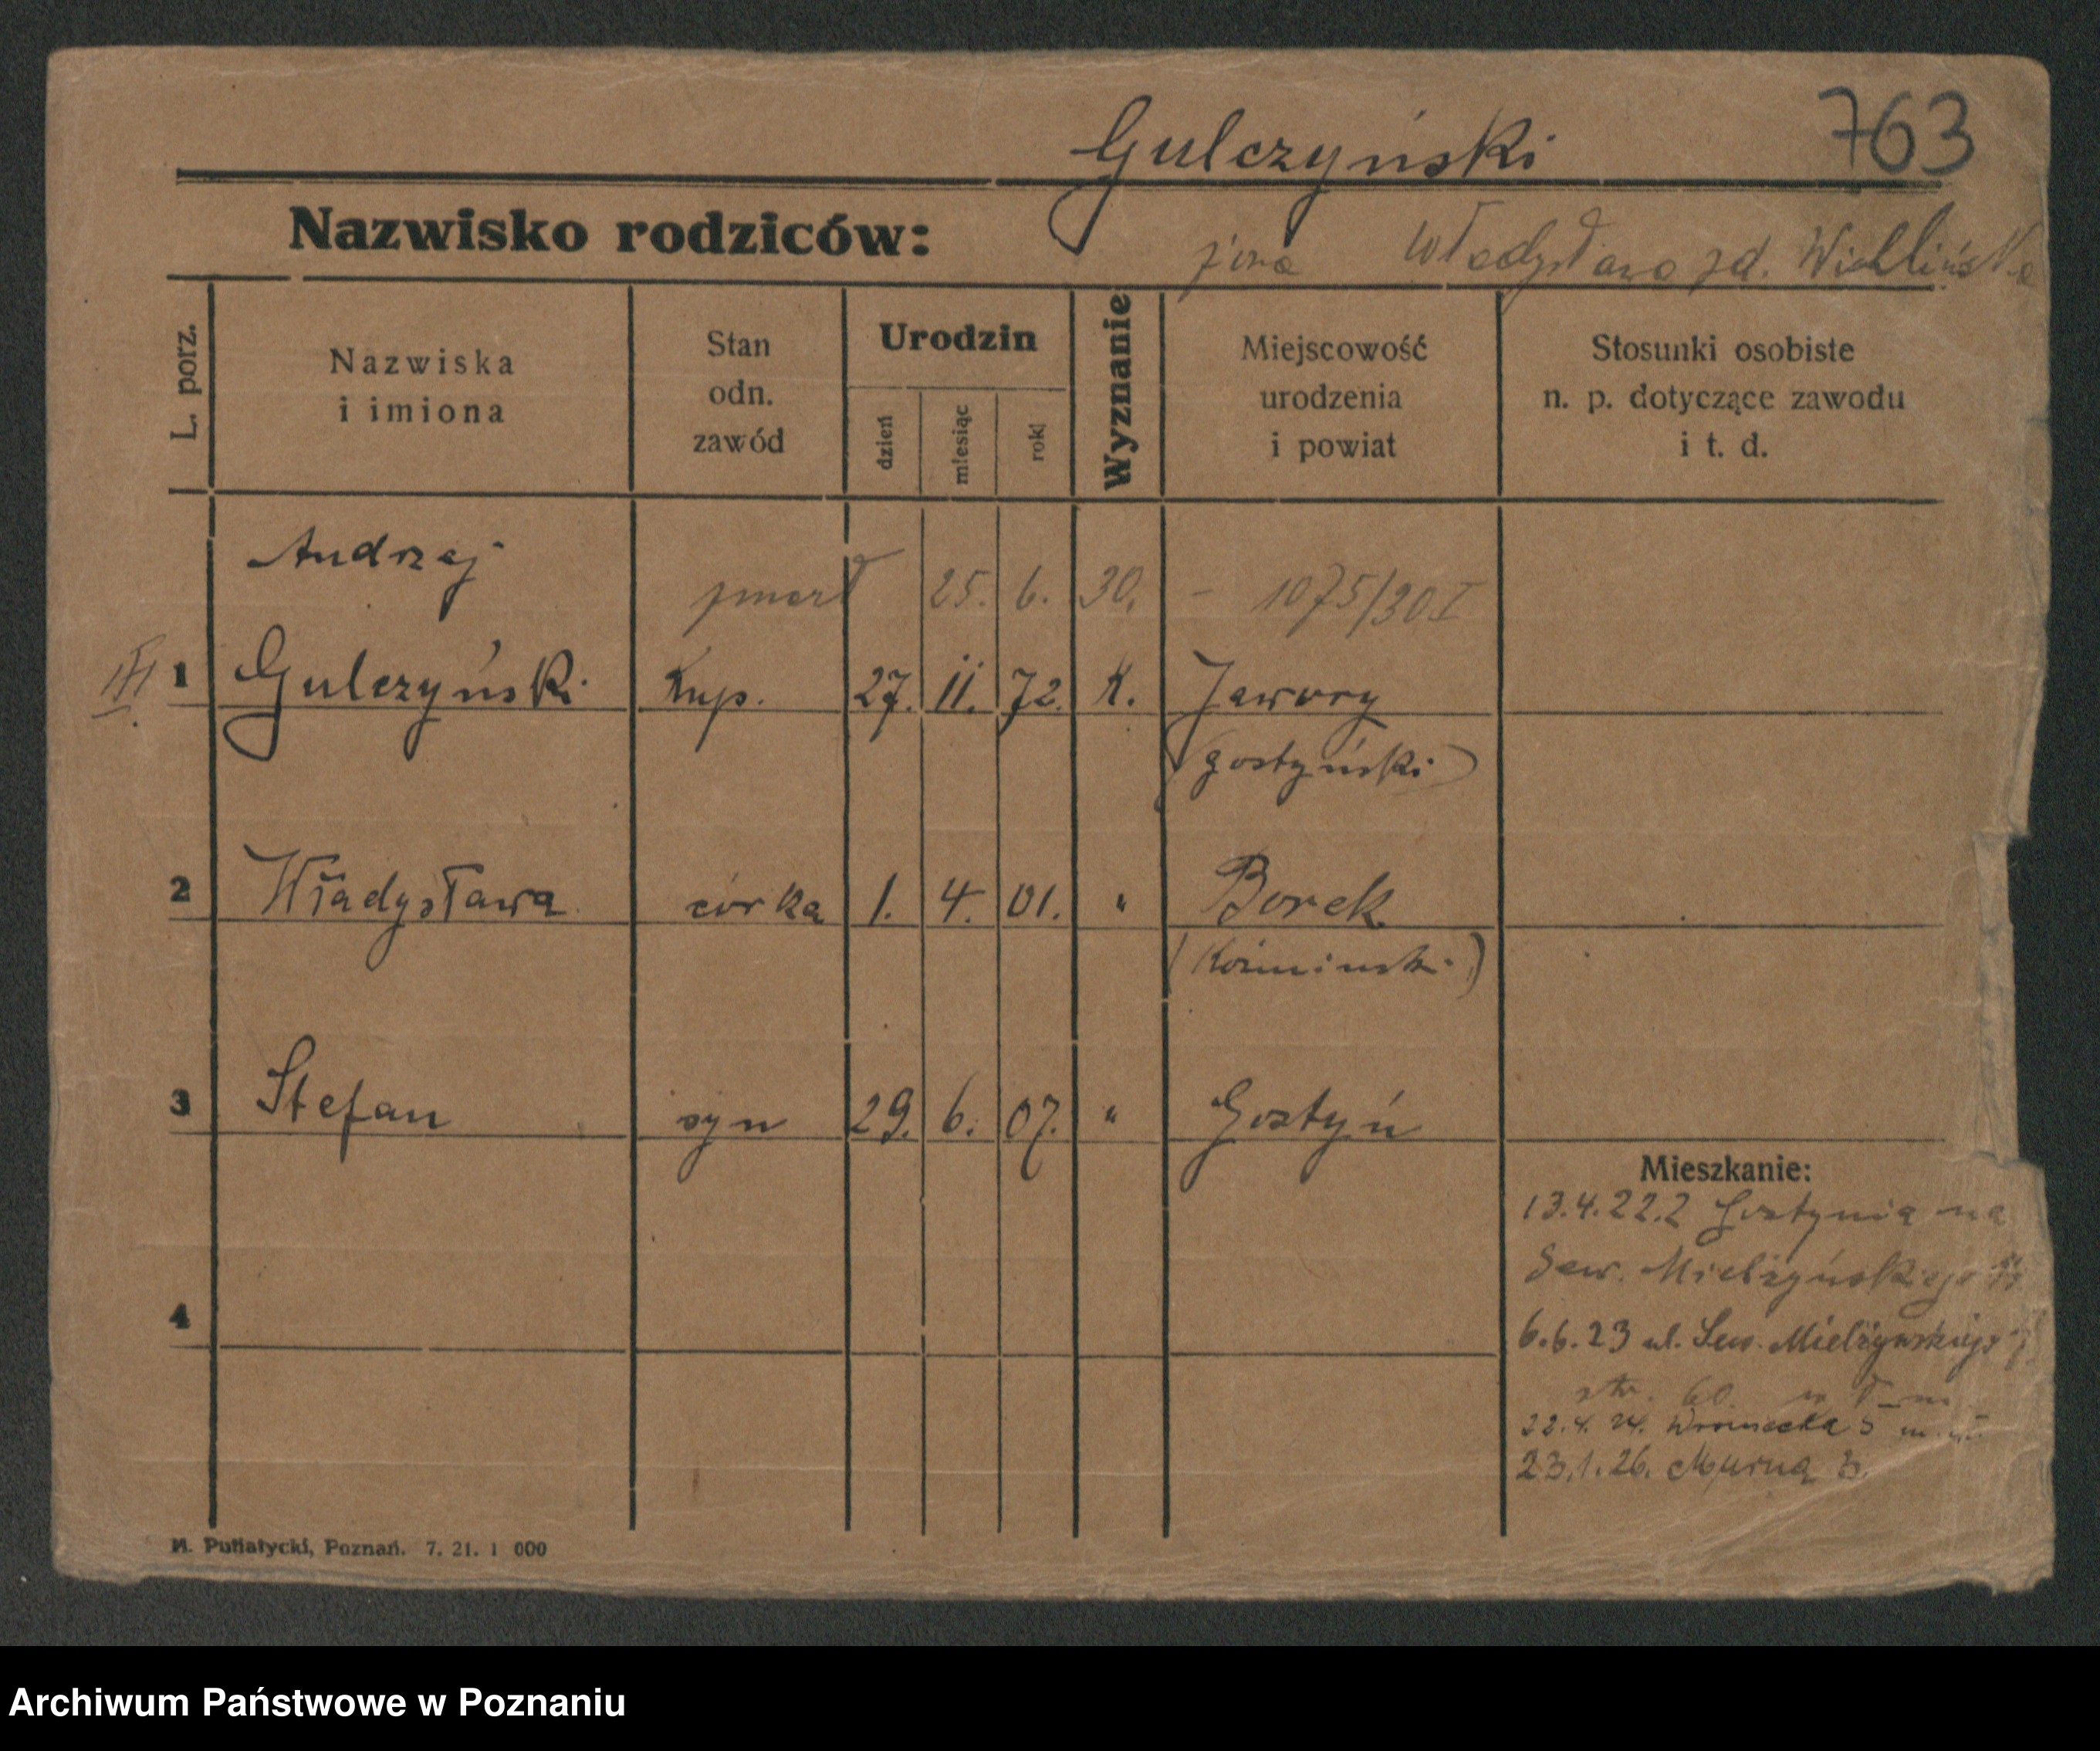 763
Gulczyński
Nazwisko rodziców:
żona Władysława zd.
L. porz.
Nazwiska
i imiona
Stan
odn.
zawód
Urodzin
dzień
miesiąc
rok
Wyznanie
Miejscowość
urodzenia
i powiat
Stosunki osobiste
n. p. dotyczące zawodu
i t. d.
Andrzej
zmarł 25. 6. 30. – 1075/30 I
1 Gulczyński Kup. 27. 11. 72. K. Jawory
(gostyński)
2 Władysława córka 1. 4. 01. " Borek
(Koźmiński)
3 Stefan syn 29. 6. 07. " Gostyń
Mieszkanie:
13.4.22. z Gostynia na
Sew. Mielżyńskiego
4
6.6.23 ul. Sew. Mielżyńskiego
22.4.24. Wroniecka 5
23.1.26. Murna 3.
M. Putiatycki, Poznań. 7. 21. 1 000
Archiwum Państwowe w Poznaniu